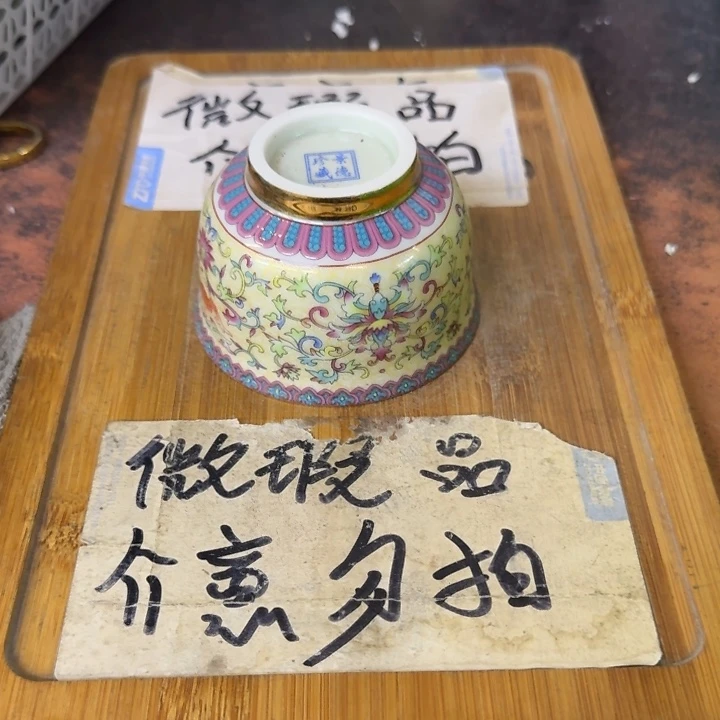 微瑕品
介 拍
景德
珍藏
微瑕品
介意勿拍